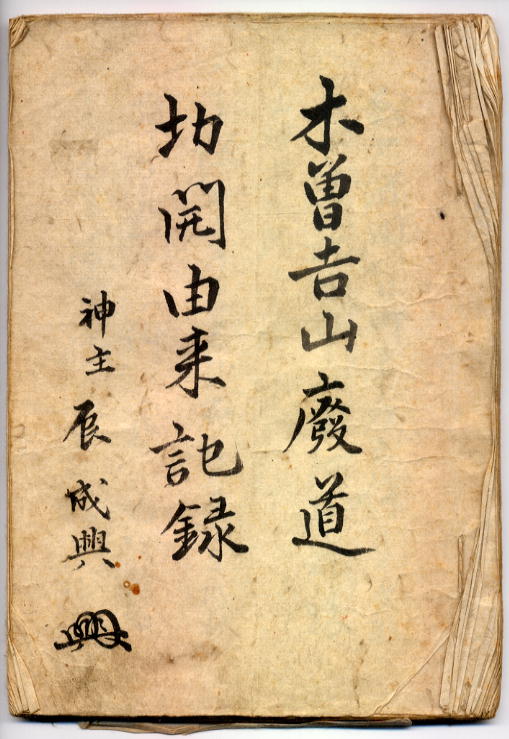 木曽吉山廢道
切開由来記録
神主 辰 成興